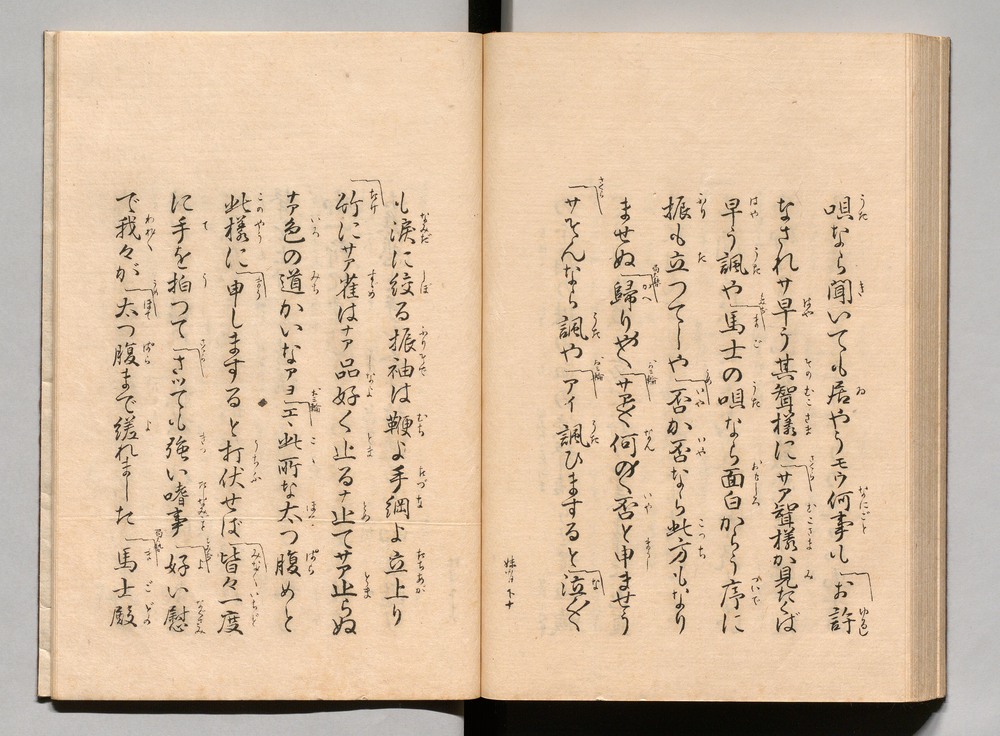 唄なら聞いても居やうモウ何事も「お許
なされサ早う其聟様に「サア聟様が見たくば
早う諷や「馬士の唄なら面白からう序に
振も立つてしや「否か否なら此方もなり
ませぬ「歸りやく「サアく何のく否と申ませう
「サそんなら諷や「アイ諷ひまするとく泣く
妹背 下 十
も涙に絞る振袖は鞭よ手綱よ立上り
「竹にサア雀はナア品好く止るナ止てサア止らぬ
ナア色の道かいなアヨ「エヽ此所な太つ腹めと
此様に「申しまする と打伏せば「皆々一度
に手を拍つて「さッても強い嗜事「好い慰
で我々が「太つ腹まで緩れました「馬士殿